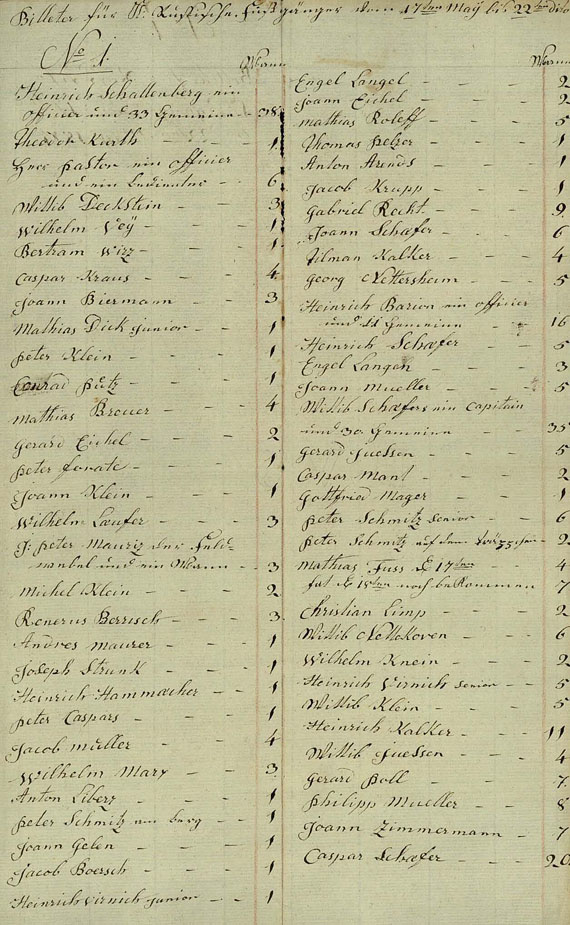 Billeter für St. Russische Fussgänger vom 17ten May bis 22ten dito
No 1.
Mann
Heinrich Schallenberg ein
officier und 33 Gemeine - 38
Theodor Kurth - 1
Herr pastor ein officier
und ein bedienter - 6
Wittib Deckstein - 3
Wilhelm Veÿ - 1
Bertram Wirz - 1
Caspar Kraus - 4
Joann Biermann - 3
Mathias Dick junior - 1
peter Klein - 1
Conrad pütz - 1
Mathias Breuer - 4
Gerard Eichel - 2
peter forate - 1
Joann Klein - 1
Wilhelm Laufer - 3
J: peter Mauriz der Feld-
webel und ein Mann - 3
Michel Klein - 2
Renerus Berrisch - 3
Andres Maurer - 1
Joseph Strunk - 1
Heinrich Hammæcher - 1
peter Caspars - 1
Jacob müller - 4
Wilhelm Marx - 3
Anton Liberz - 1
peter Schmitz am berg - 1
Joann Gelen - 1
Jacob Boersch - 1
Heinrich Virnich junior - 1
Mann
Engel Langel - 2
Joann Eichel - 2
mathias Roleff - 5
Thomas pelzer - 1
Anton Arends - 1
Jacob Krupp - 1
Gabriel Recht - 9
Joann Schæfer - 6
Tilman Kalker - 4
Georg Nettersheim - 5
Heinrich Barion ein officier
und 11 Gemeine - 16
Heinrich Schæfer - 5
Engel Langen - 3
Joann Mueller - 5
Wittib Schæfers ein Capitain
und 30 Gemeine - 35
Gerard Juessen - 5
Caspar Manl - 2
Gottfried Mager - 1
peter Schmitz senior - 6
peter Schmitz auf dem - 2
Mathias Fuss d 17ten - 4
hat d 18ten noch bekommen 7
Christian Limp - 2
Wittib Nettekoven - 6
Wilhelm Knein - 2
Heinrich Virnich senior - 5
Wittib Klein - 5
Heinrich Kalker - 11
Wittib Juessen - 4
Gerard poll - 7
philipp Mueller - 8
Joann Zimmermann - 7
Caspar Schæfer - 20